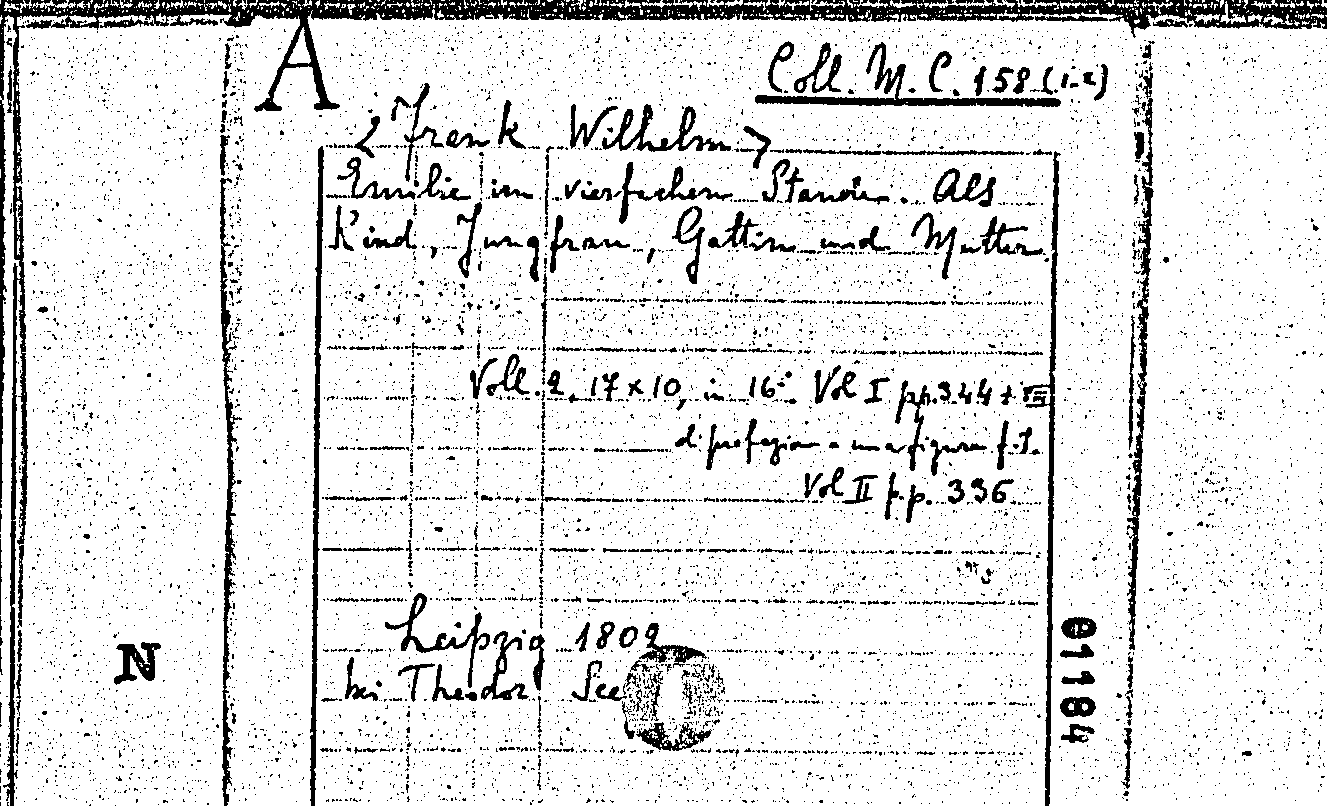 A
Coll. M. C. 158 (1-2)
<Frank Wilhelm>
Emilie im vierfachen Stande. Als
Kind, Jungfrau, Gattin und Mutter.
Voll. 2, 17 x 10, in 16°. Vol I pp. 344 + VIII
di prefazion e una figura f. t.
Vol II p.p. 336
Leipzig 1802
bei Theodor See
N
01184